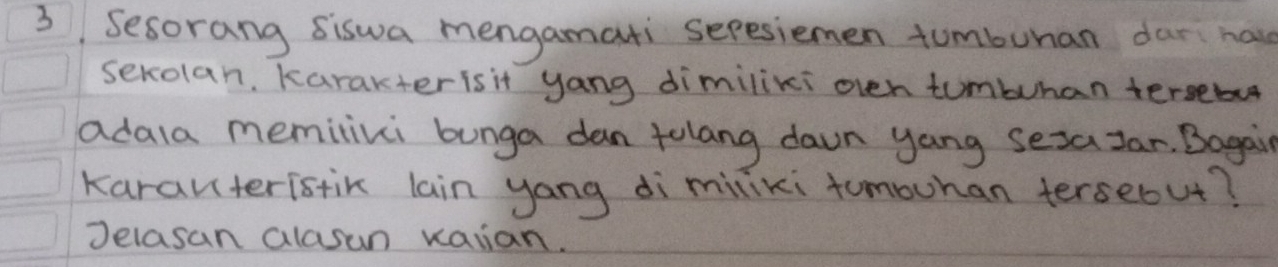 3. Sesorang siswa mengamati sepesiemen tumbuhan dari
sekolah. Karakterisit yang dimiliki oleh tumbuhan tersebut
adala memiliki bunga dan tulang daun yang sejajar.
Karakteristik lain yang di miliki tumbuhan tersebut?
Jelasan alasan kalian.